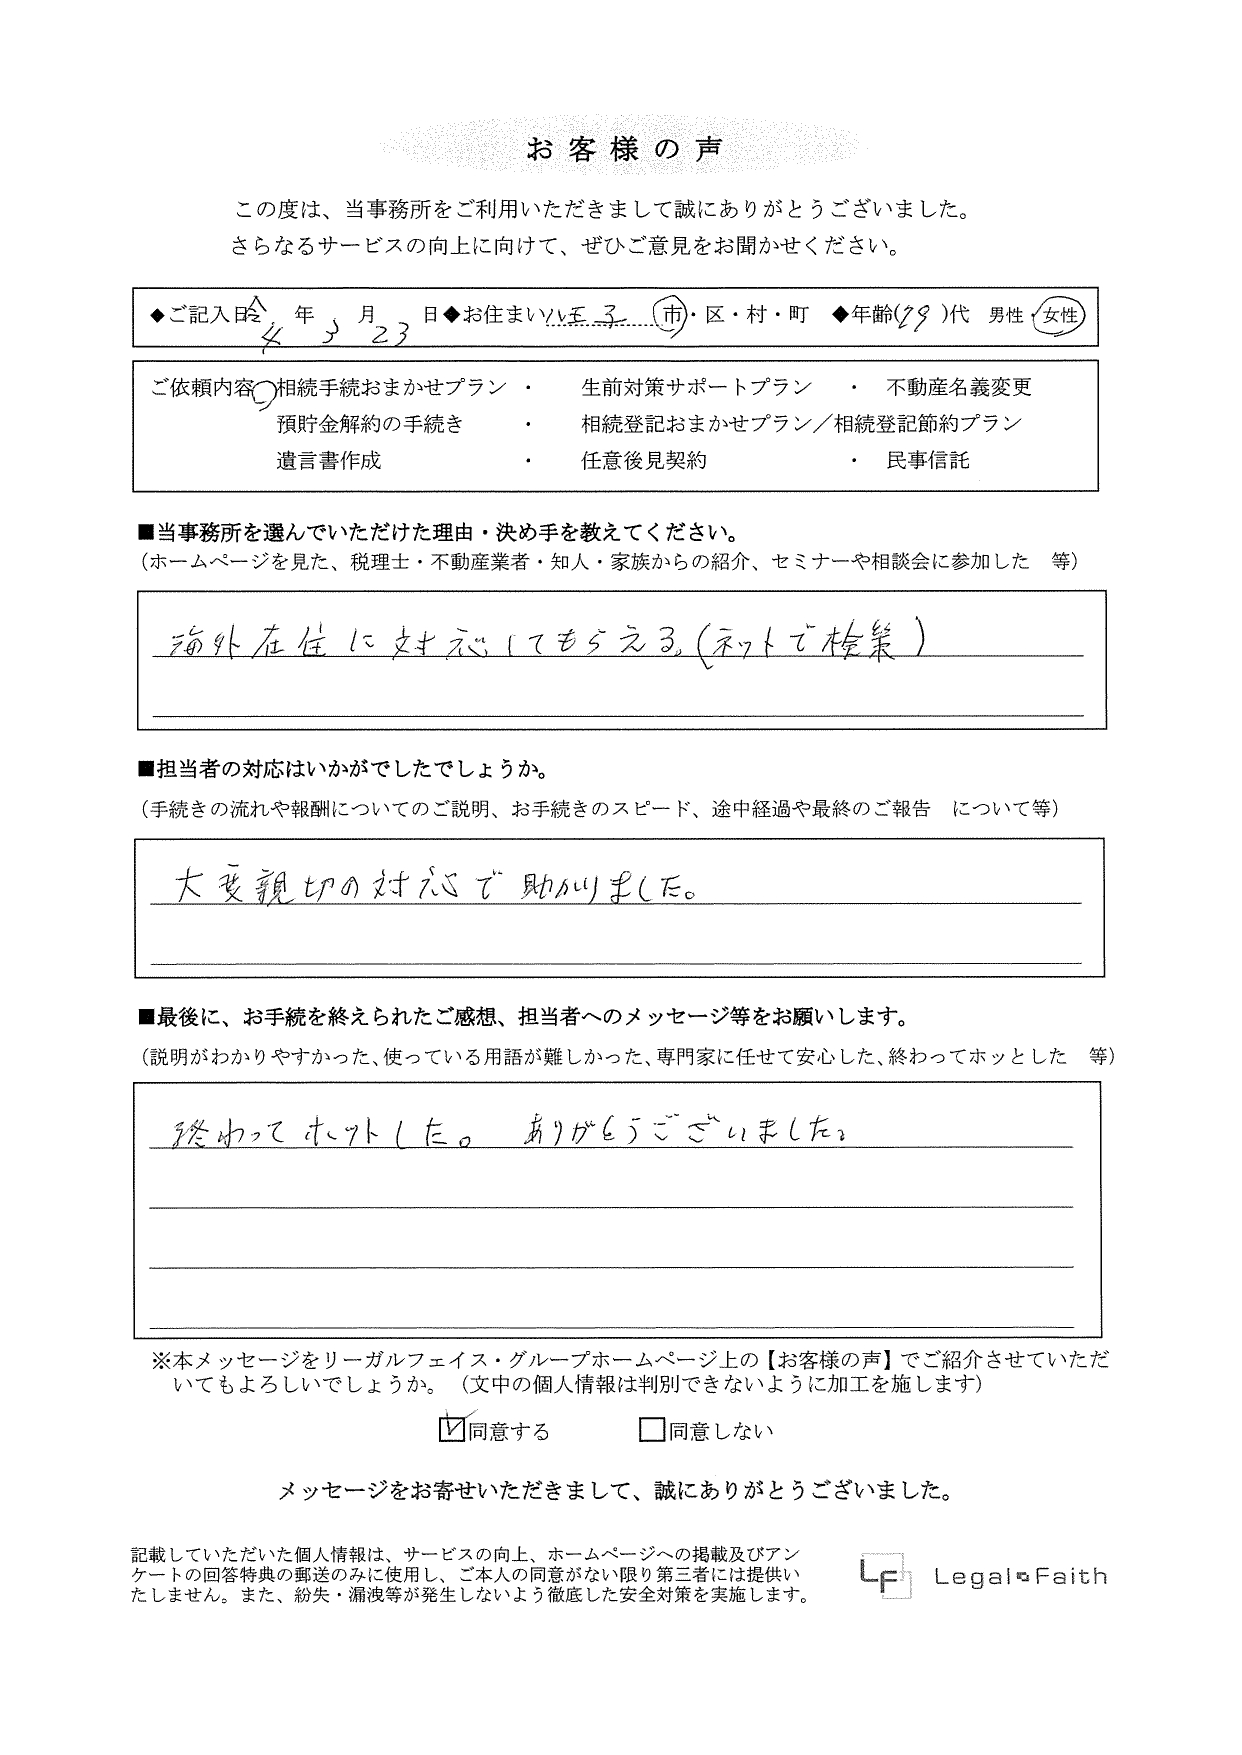 お客様の声
この度は、当事務所をご利用いただきまして誠にありがとうございました。
さらなるサービスの向上に向けて、ぜひご意見をお聞かせください。
◆ご記入日 令 4 年 3 月 23 日◆お住まい 八王子 市・区・村・町 ◆年齢(79)代 男性・女性
ご依頼内容 相続手続おまかせプラン ・ 生前対策サポートプラン ・ 不動産名義変更
預貯金解約の手続き ・ 相続登記おまかせプラン／相続登記節約プラン
遺言書作成 ・ 任意後見契約 ・ 民事信託
■当事務所を選んでいただけた理由・決め手を教えてください。
（ホームページを見た、税理士・不動産業者・知人・家族からの紹介、セミナーや相談会に参加した　等）
海外在住に対応してもらえる。(ネットで検策)
■担当者の対応はいかがでしたでしょうか。
（手続きの流れや報酬についてのご説明、お手続きのスピード、途中経過や最終のご報告　について等）
大変親切の対応で助かりました。
■最後に、お手続を終えられたご感想、担当者へのメッセージ等をお願いします。
（説明がわかりやすかった、使っている用語が難しかった、専門家に任せて安心した、終わってホッとした　等）
終わってホットした。 ありがとうございました。
※本メッセージをリーガルフェイス・グループホームページ上の【お客様の声】でご紹介させていただ
いてもよろしいでしょうか。（文中の個人情報は判別できないように加工を施します）
☑同意する □同意しない
メッセージをお寄せいただきまして、誠にありがとうございました。
記載していただいた個人情報は、サービスの向上、ホームページへの掲載及びアン
ケートの回答特典の郵送のみに使用し、ご本人の同意がない限り第三者には提供い
たしません。また、紛失・漏洩等が発生しないよう徹底した安全対策を実施します。
LF Legal Faith